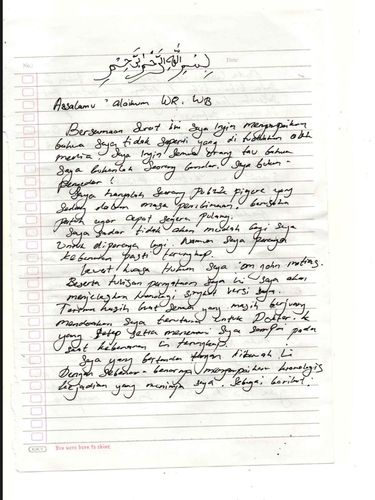 No:
Date:
بسم الله الرحمن الرحيم
Assalamu 'alaikum WR. WB
Bersamaan Surat ini Saya Ingin menyampaikan
bahwa Saya tidak seperti yang di tuduhkan oleh
media Saya Ingin Semua orang tau bahwa
Saya bukanlah Seorang bandar. Saya bukan
Pengedar!
Saya hanyalah Seorang Public figure yang
Sedang dalam masa pembinaan. berusaha
patuh agar Cepat Segera Pulang.
Saya Sadar tidak akan mudah bagi Saya
Untuk dipercaya lagi. Namun Saya percaya
kebenaran pasti terungkap.
Lewat kuasa Hukum Saya
Beserta tulisan pernyataan Saya ini Saya akan
menjelaskan kronologi singkat versi Saya.
Terima kasih buat Semua yang masih berjuang
Saya terutama Untuk Dokter. k
yang tetap setia menemani Saya Sampai pada
Saat kebenaran ini terungkap.
Saya yang bertanda tangan dibawah Ini
Dengan Sebenar-benarnya menyampaikan kronologis
kejadian yang menimpa Saya. Sebagai berikut:
KIKY
You were born to shine